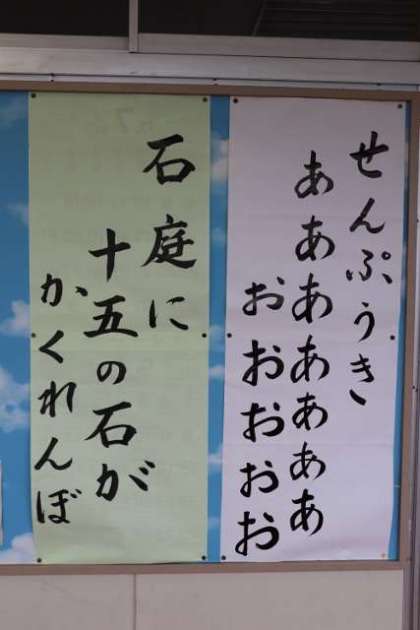 せんぷうき
あああああああ
おおおおお
石庭に
十五の石が
かくれんぼ